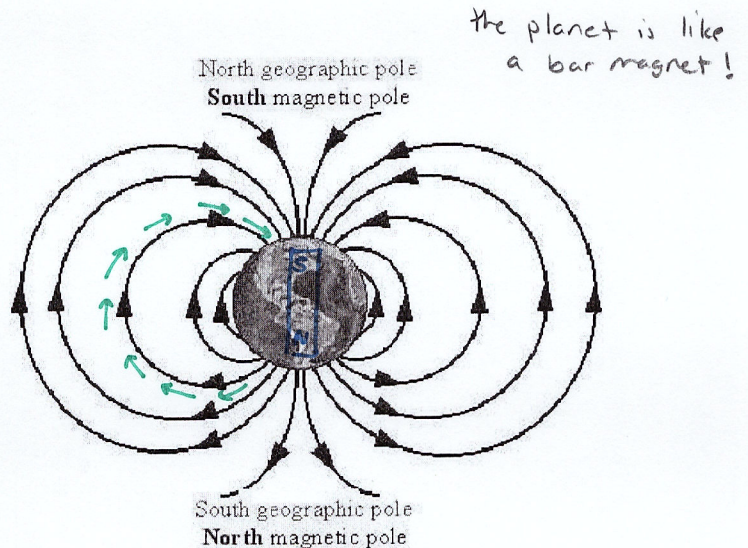 the planet is like
a bar magnet!
North geographic pole
South magnetic pole
S
N
South geographic pole
North magnetic pole